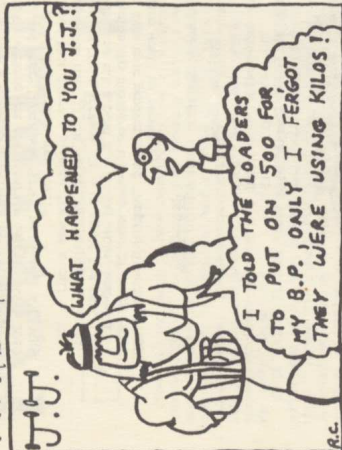 J.J.
WHAT HAPPENED TO YOU J.J.?
I TOLD THE LOADERS
TO PUT ON 500 FOR
MY B.P., ONLY I FERGOT
THEY WERE USING KILOS!
R.C.